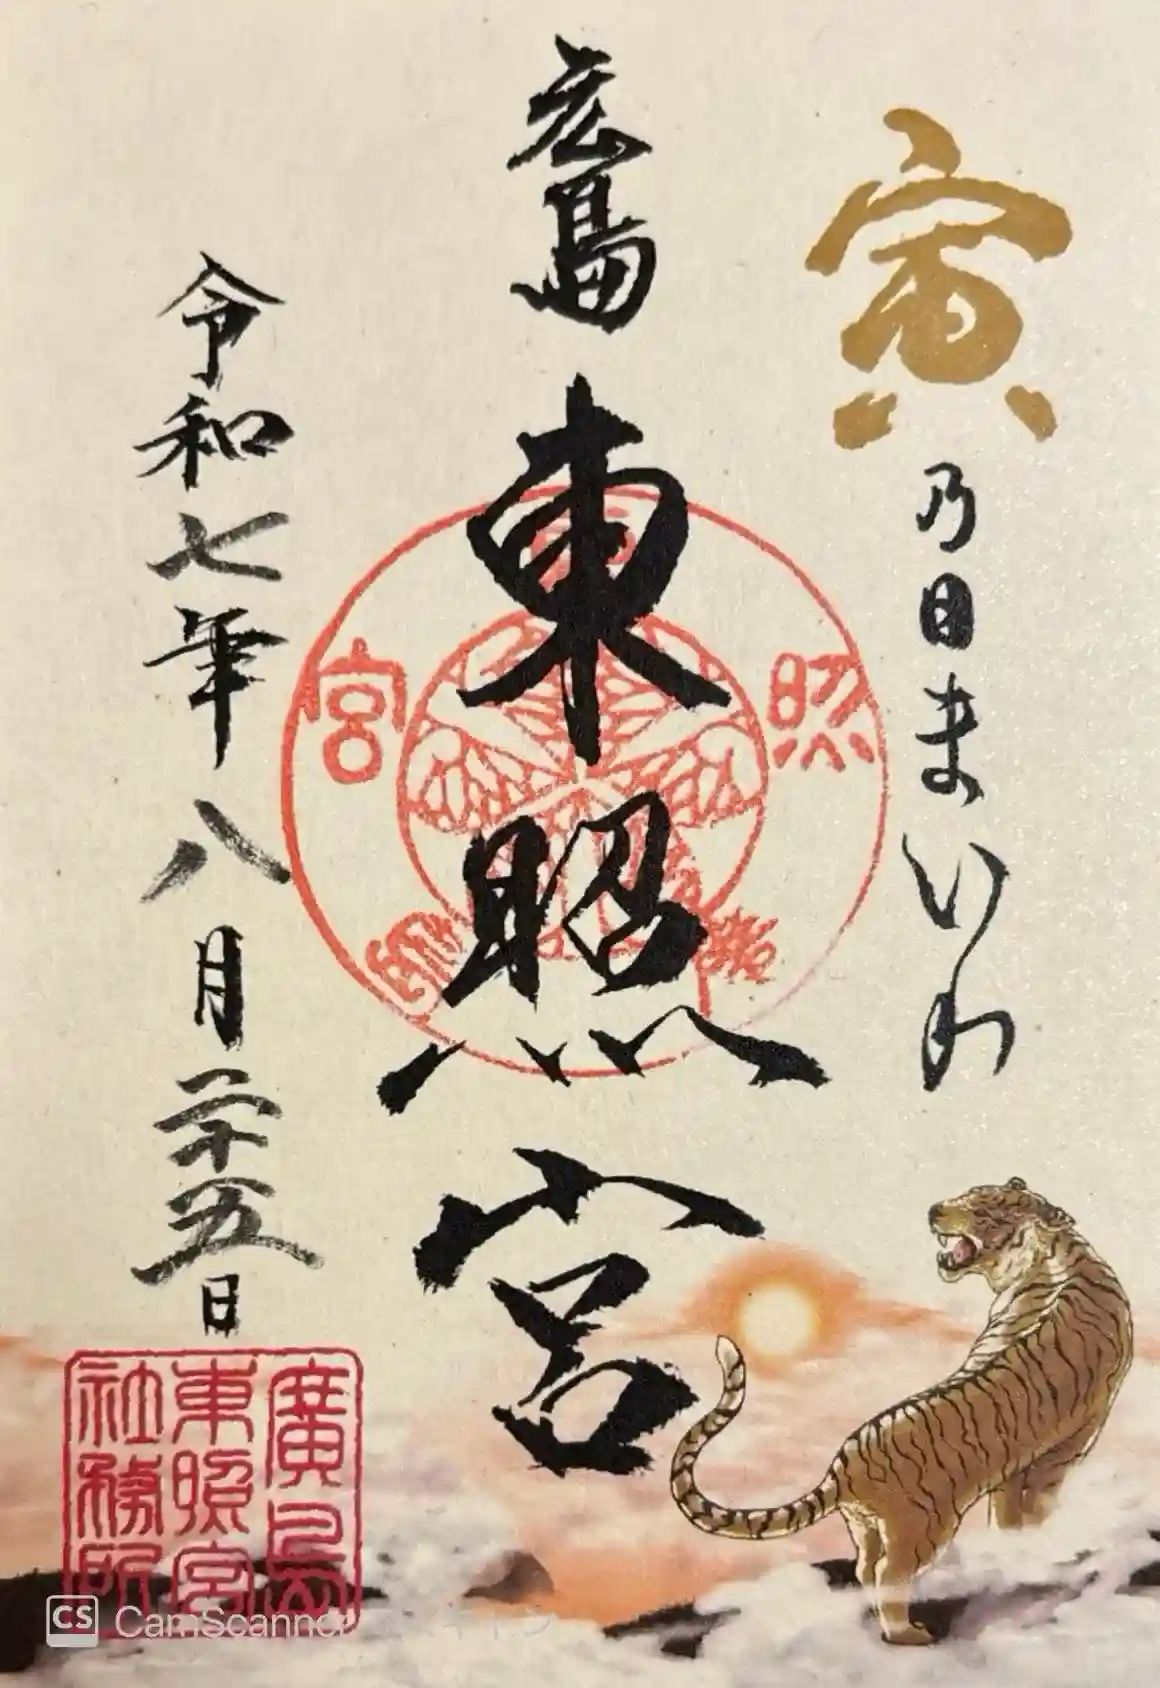 寅乃日まいり
広島東照宮
令和七年八月二十五日
照
宮
廣島
東照宮
社務所
CS CamScanner